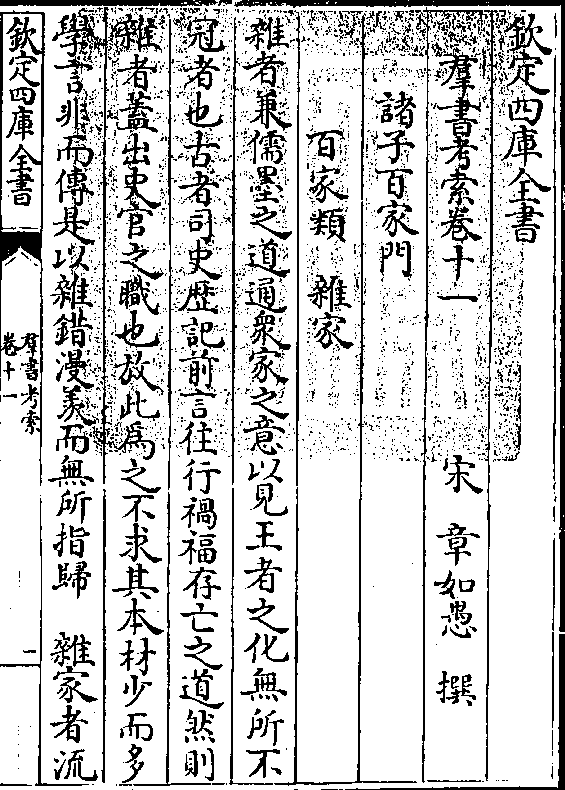 欽定四庫全書
羣書考索卷十一 宋 章如愚 撰
諸子百家門
百家類 雜家
雜者兼儒墨之道通衆家之意以見王者之化無所不
冠者也古者司史歴記前言往行禍福存亡之道然則
雜者蓋出史官之職也放此爲之不求其本材少而多
學言非而傳是以雜錯漫羨而無所指歸 雜家者流
欽定四庫全書
羣書考索
卷十一
一